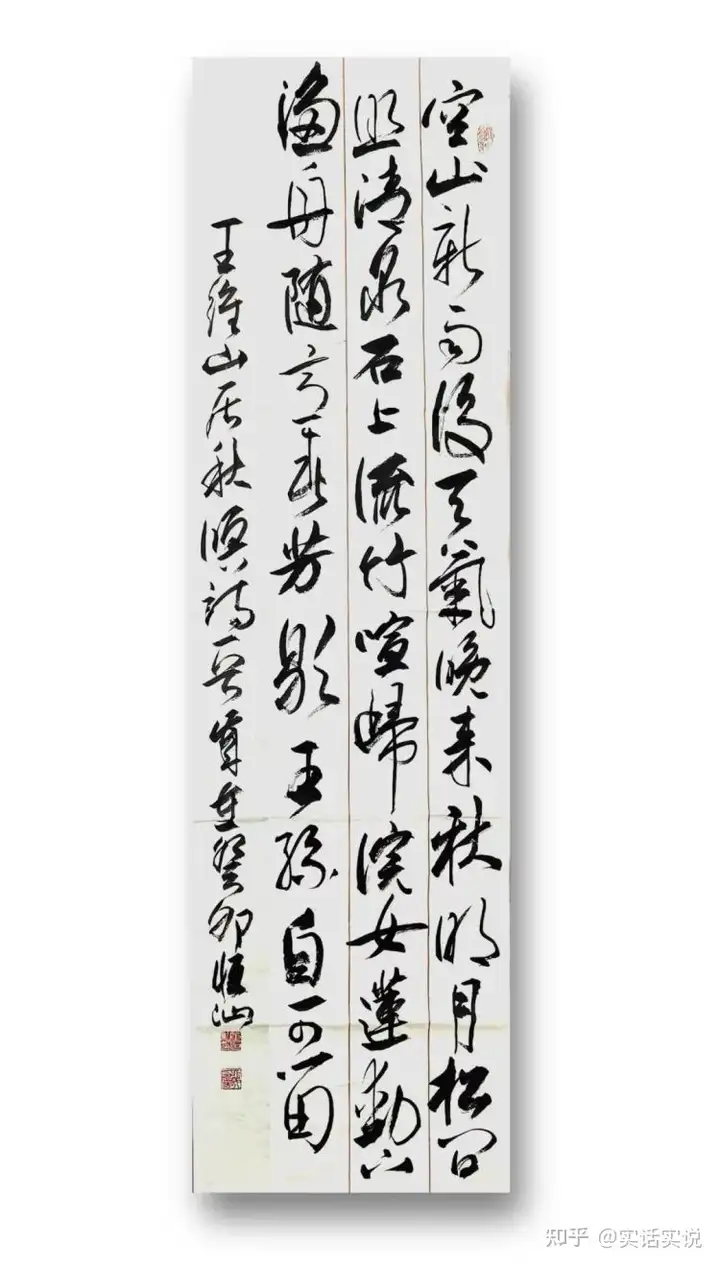 空山新雨後天氣晚来秋明月松间
照清泉石上流竹喧歸浣女蓮動下
漁舟随意春芳歇王孫自可留
王維山居秋暝詩一首歲在癸卯恒汕
知乎 @实话实说